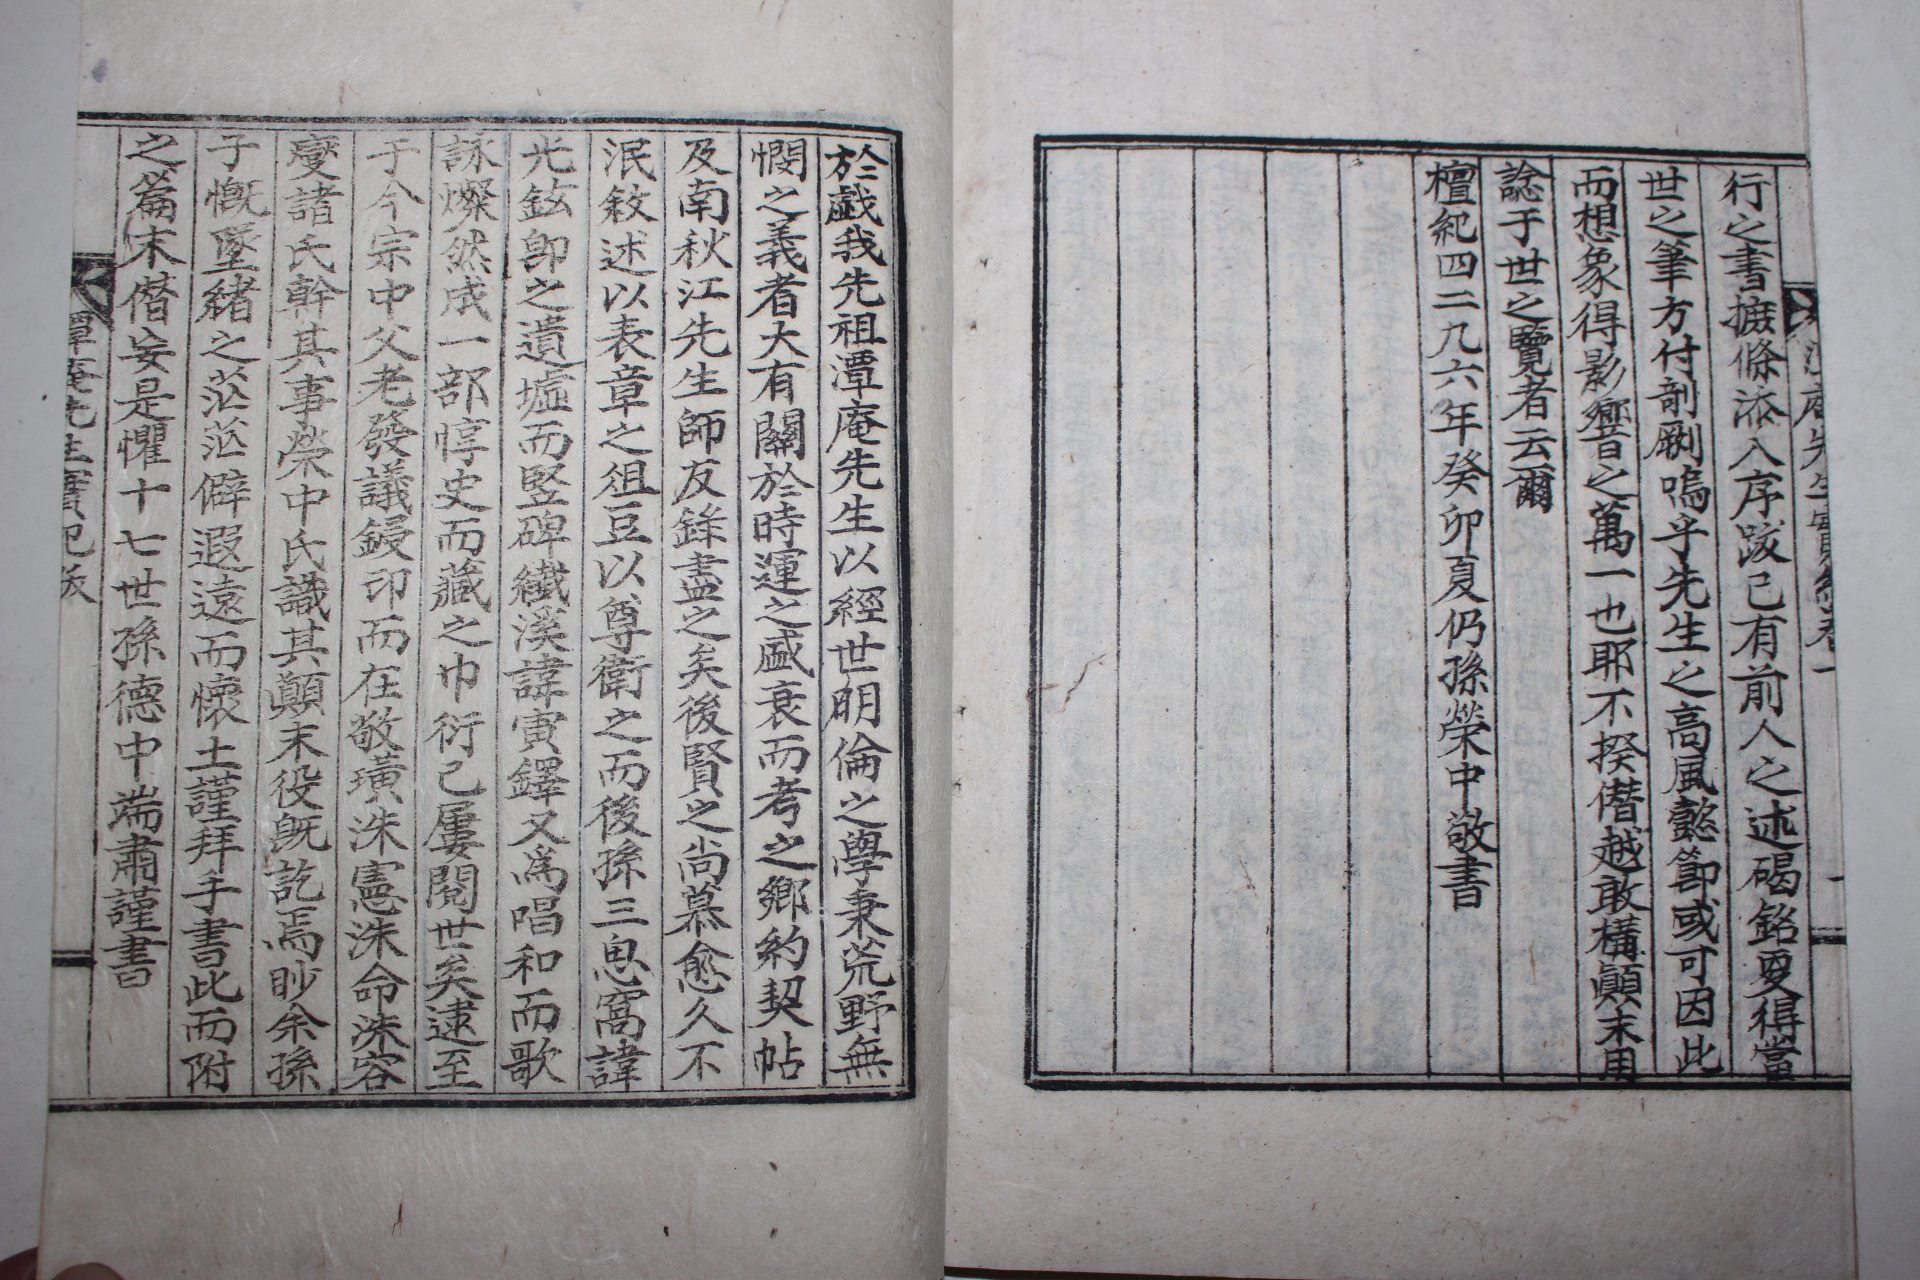 行之書摭條添入序跋已有前人之述碣銘要得當
世之筆方付剞劂嗚乎先生之高風懿節或可因此
而想象得影響之萬一也耶不揆僭越敢構顚末用
諗于世之覽者云爾
檀紀四二九六年癸卯夏仍孫榮中敬書
於戲我先祖潭庵先生以經世明倫之學秉荒野無
憫之義者大有關於時運之盛衰而考之鄕約契帖
及南秋江先生師友錄盡之矣後賢之尙慕愈久不
泯敍述以表章之俎豆以尊衛之而後孫三思窩諱
光鉉卽之遺墟而竪碑纖溪諱寅鐸又爲唱和而歌
詠燦然成一部惇史而藏之巾衍已屢閱世矣逮至
于今宗中父老發議鋟印而在敬璜洙憲洙命洙容
燮諸氏幹其事榮中氏識其顚末役旣訖焉眇余孫
子慨墜緖之茫茫僻遐遠而懷土謹拜手書此而附
之篇末僭妄是懼十七世孫德中端肅謹書
潭庵先生實記跋